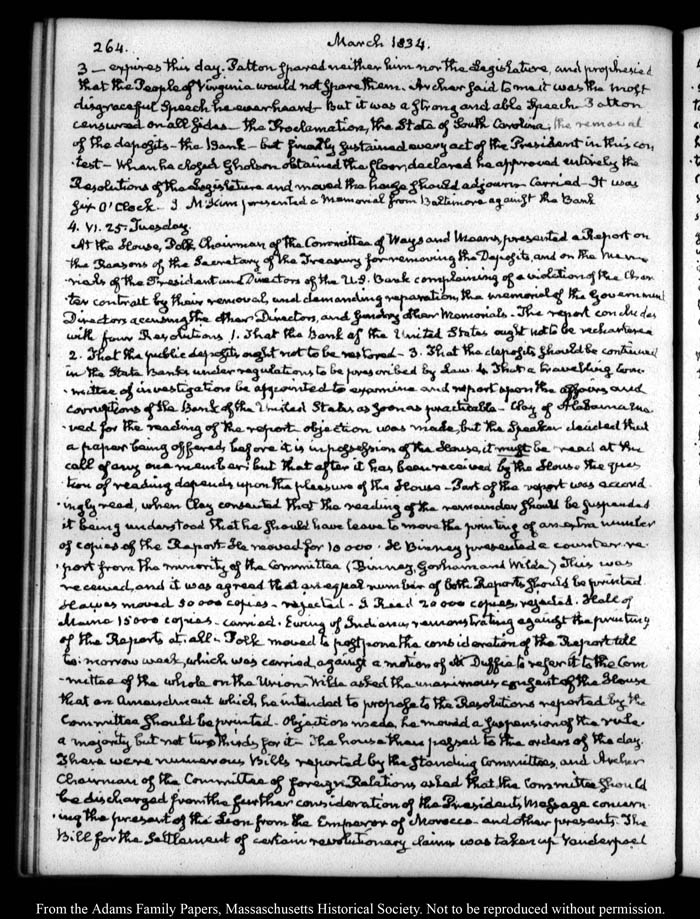 264. March 1834.
3 — expires this day. Patton spared neither him nor the Legislature, and prophesied
that the People of Virginia would not spare them. Archer said to me it was the most
disgraceful Speech he ever heard — But it was a strong and able Speech. Patton
censured on all sides — the Proclamation, the State of South Carolina, the removal
of the deposits — the Bank — but finally sustained every act of the President in this con
test — When he closed Gholson obtained the floor, declared he approved entirely the
Resolutions of the Legislature and moved the house should adjourn. Carried — It was
six O'Clock — I M'Kim presented a Memorial from Baltimore against the Bank
4. VI. 25. Tuesday.
At the House, Polk, Chairman of the Committee of Ways and Means, presented a Report on
the Reasons of the Secretary of the Treasury for removing the Deposits, and on the Memo-
rials of the President and Directors of the U.S. Bank complaining of a violation of the Char
ter contract by their removal, and demanding reparation, the memorial of the Government
Directors accusing the other Directors, and sundry other Memorials — The report concludes
with four Resolutions 1. That the Bank of the United States ought not to be rechartered
2. That the public deposits ought not to be restored — 3. That the deposits should be continued
in the State Banks under regulations to be prescribed by Law. 4. That a travelling Com
-mittee of investigation be appointed to examine and report upon the affairs and
corruptions of the Bank of the United States as soon as practicable — Clay of Alabama mo
-ved for the reading of the report objection was made, but the Speaker decided that
a paper being offered, before it is in possession of the House, it must be read at the
call of any one member; but that after it has been received by the House the ques
tion of reading depends upon the pleasure of the House — Part of the report was accord
-ingly read, when Clay consented that the reading of the remainder should be suspended
it being understood that he should have leave to move the printing of an extra number
of copies of the Report. He moved for 10 000. H Binney presented a counter-re
-port from the minority of the Committee (Binney, Gorham and Wilde) This was
received, and it was agreed that an equal number of both Reports should be printed.
was moved 30 000 copies — rejected — I Reed 20 000 copies, rejected. Hall of
Maine 15 000 copies — carried. Ewing of Indiana remonstrating against the printing
of the Reports at all — Polk moved to postpone the consideration of the Report till
to-morrow week, which was carried, against a motion of M' Duffie to refer it to the Com
-mittee of the whole on the Union. Wilde asked the unanimous consent of the House
that an Amendment which he intended to propose to the Resolutions reported by the
Committee should be printed — Objection made, he moved a suspension of the rule.
a majority but not two thirds for it — The house then passed to the orders of the day.
There were numerous Bills reported by the Standing Committees, and Archer
Chairman of the Committee of foreign Relations asked that the Committee should
be discharged from the further consideration of the Presidents Message concern
-ing the present of the Lion from the Emperor of Morocco and other presents. The
Bill for the Settlement of certain revolutionary claims was taken up Vanderpoel
From the Adams Family Papers, Massachusetts Historical Society. Not to be reproduced without permission.